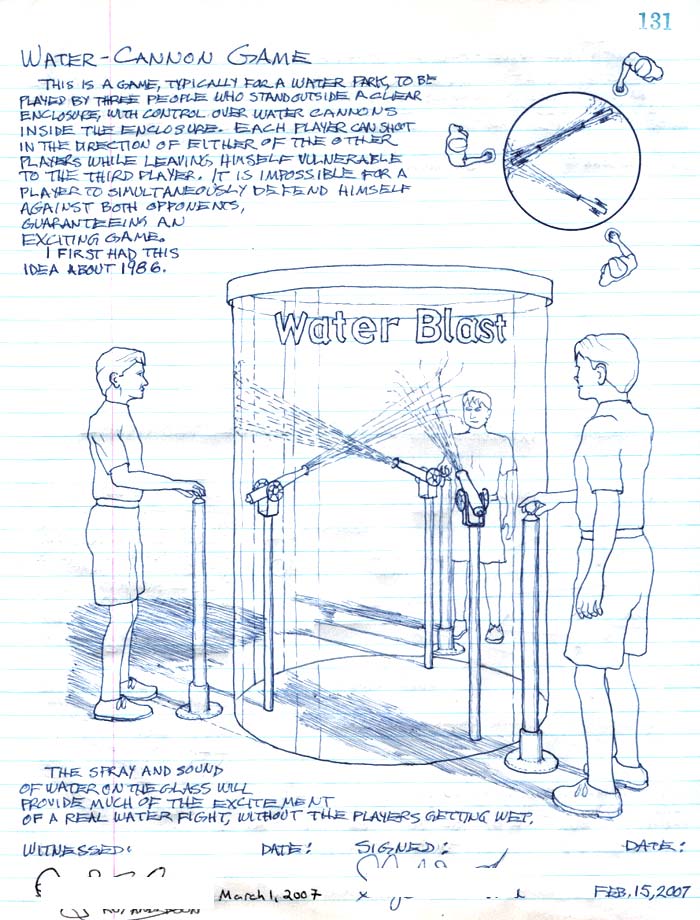 131
WATER-CANNON GAME
THIS IS A GAME, TYPICALLY FOR A WATER PARK, TO BE
PLAYED BY THREE PEOPLE WHO STAND OUTSIDE A CLEAR
ENCLOSURE, WITH CONTROL OVER WATER CANNONS
INSIDE THE ENCLOSURE. EACH PLAYER CAN SHOOT
IN THE DIRECTION OF EITHER OF THE OTHER
PLAYERS WHILE LEAVING HIMSELF VULNERABLE
TO THE THIRD PLAYER. IT IS IMPOSSIBLE FOR A
PLAYER TO SIMULTANEOUSLY DEFEND HIMSELF
AGAINST BOTH OPPONENTS,
GUARANTEEING AN
EXCITING GAME.
I FIRST HAD THIS
IDEA ABOUT 1986.
Water Blast
THE SPRAY AND SOUND
OF WATER ON THE GLASS WILL
PROVIDE MUCH OF THE EXCITEMENT
OF A REAL WATER FIGHT, WITHOUT THE PLAYERS GETTING WET.
WITNESSED: DATE: SIGNED: DATE:
March 1, 2007 x FEB. 15, 2007